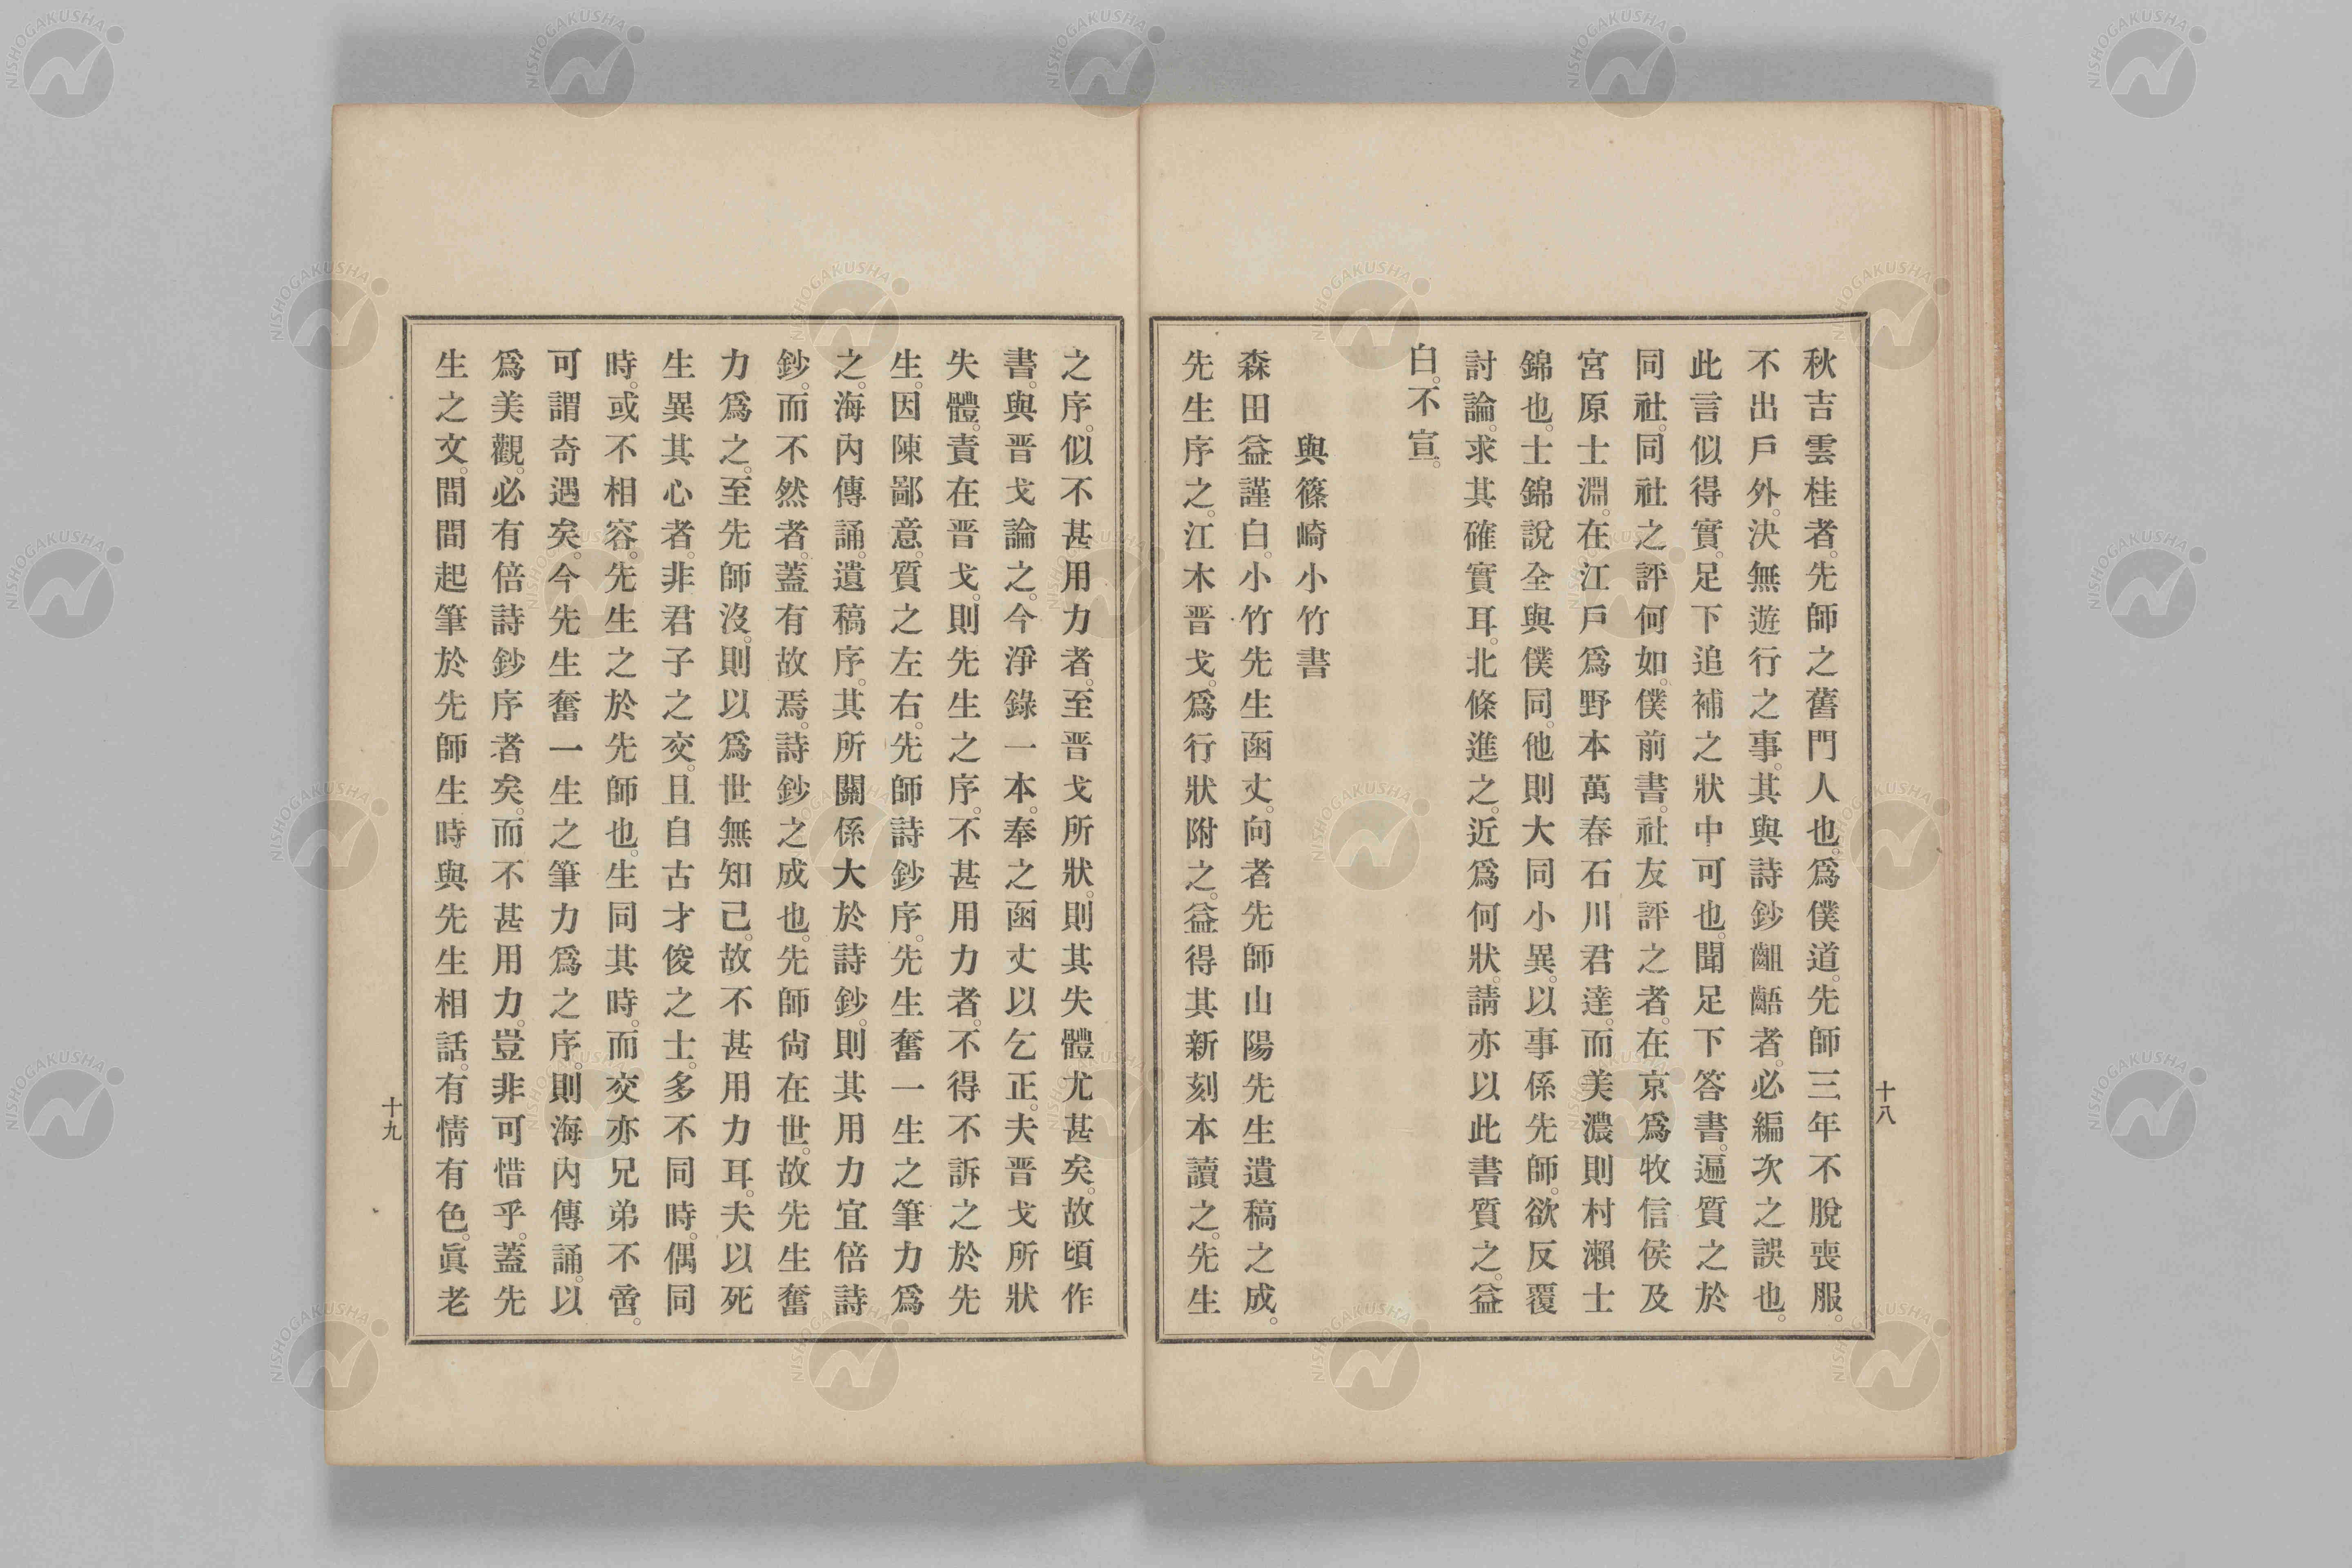 秋吉雲桂者。先師之舊門人也。爲僕道。先師三年不脫喪服。
不出戶外。決無遊行之事。其與詩鈔齟齬者。必編次之誤也。
此言似得實。足下追補之狀中可也。聞足下答書。遍質之於
同社。同社之評何如。僕前書。社友評之者。在京爲牧信侯及
宮原士淵。在江戶爲野本萬春石川君達。而美濃則村瀨士
錦也。士錦說全與僕同。他則大同小異。以事係先師。欲反覆
討論。求其確實耳。北條進之。近爲何狀。請亦以此書質之。益
白。不宣。
與篠崎小竹書
森田益謹白。小竹先生函丈。向者先師山陽先生遺稿之成。
先生序之。江木晋戈。爲行狀附之。益得其新刻本讀之。先生
十八
之序。似不甚用力者。至晋戈所狀。則其失體尤甚矣。故頃作
書。與晋戈論之。今淨錄一本。奉之函丈以乞正。夫晋戈所狀
失體。責在晋戈。則先生之序。不甚用力者。不得不訴之於先
生。因陳鄙意。質之左右。先師詩鈔序。先生奮一生之筆力爲
之。海內傳誦。遺稿序。其所關係大於詩鈔。則其用力宜倍詩
鈔。而不然者。蓋有故焉。詩鈔之成也。先師尙在世。故先生奮
力爲之。至先師沒。則以爲世無知己。故不甚用力耳。夫以死
生異其心者。非君子之交。且自古才俊之士。多不同時。偶同
時。或不相容。先生之於先師也。生同其時。而交亦兄弟不啻。
可謂奇遇矣。今先生奮一生之筆力爲之序。則海內傳誦。以
爲美觀。必有倍詩鈔序者矣。而不甚用力。豈非可惜乎。蓋先
生之文。間間起筆於先師生時與先生相話。有情有色。眞老
十九